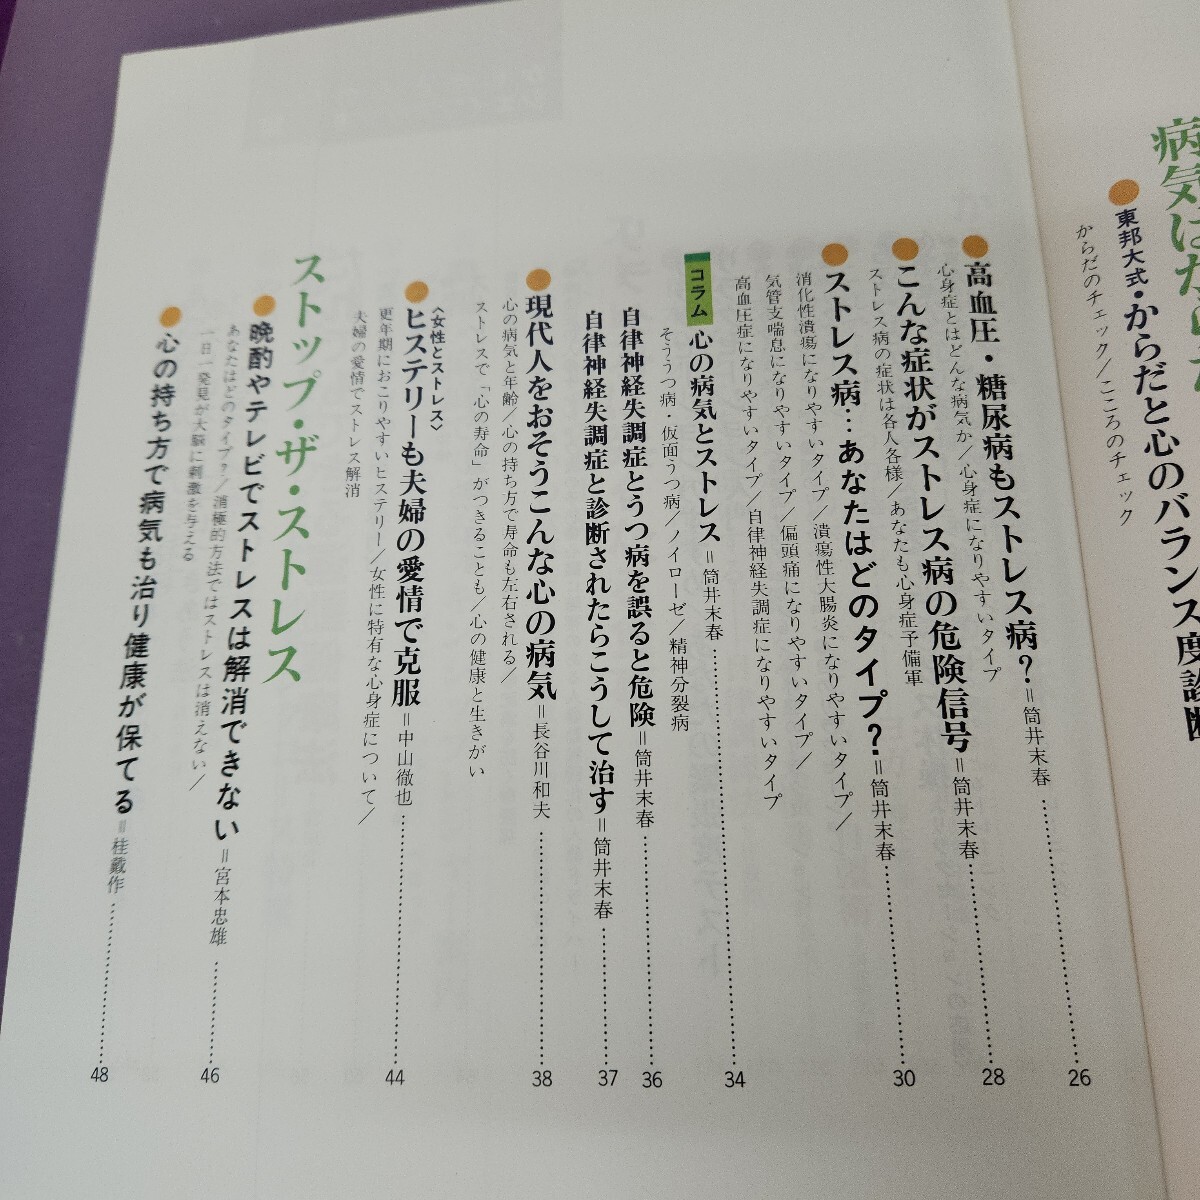 病気は
東邦大式・からだと心のバランス度診断
からだのチェック／こころのチェック
高血圧・糖尿病もストレス病？＝筒井末春 26
心身症とはどんな病気か／心身症になりやすいタイプ
こんな症状がストレス病の危険信号＝筒井末春 28
ストレス病の症状は各人各様／あなたも心身症予備軍
ストレス病…あなたはどのタイプ？＝筒井末春 30
消化性潰瘍になりやすいタイプ／潰瘍性大腸炎になりやすいタイプ／
気管支喘息になりやすいタイプ／偏頭痛になりやすいタイプ／
高血圧症になりやすいタイプ／自律神経失調症になりやすいタイプ
コラム
心の病気とストレス＝筒井末春 34
そううつ病・仮面うつ病／ノイローゼ／精神分裂病
自律神経失調症とうつ病を誤ると危険＝筒井末春 36
自律神経失調症と診断されたらこうして治す＝筒井末春 37
現代人をおそうこんな心の病気＝長谷川和夫 38
心の病気と年齢／心の持ち方で寿命も左右される／
ストレスで「心の寿命」がつきることも／心の健康と生きがい
〈女性とストレス〉
ヒステリーも夫婦の愛情で克服＝中山徹也 44
更年期におこりやすいヒステリー／女性に特有な心身症について／
夫婦の愛情でストレス解消
ストップ・ザ・ストレス
晩酌やテレビでストレスは解消できない＝宮本忠雄 46
あなたはどのタイプ？／消極的方法ではストレスは消えない／
一日一発見が大脳に刺激を与える
心の持ち方で病気も治り健康が保てる＝桂戴作 48